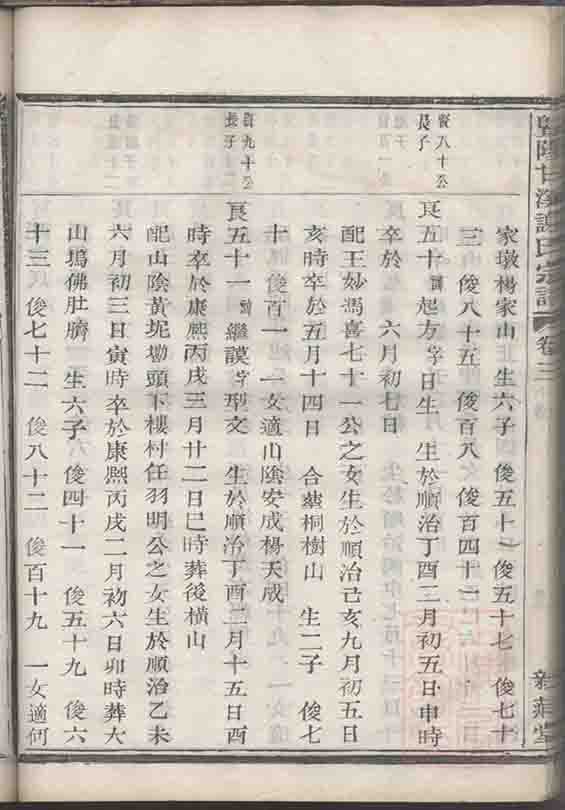 暨陽甘溪謝氏宗譜 卷三
家墩楊家山 生六子 俊五十 俊五十七 俊七十
三 俊八十五 俊百八 俊百四十
賢八十公
長子
良五十 諱起方字日生 生於順治丁酉二月初五日申時
卒於 六月初七日
配王妙馮喜七十一公之女生於順治己亥九月初五日
亥時卒於五月十四日 合葬桐樹山 生二子 俊七
十 俊百一 一女適山陰安成楊天成
九十公
長子
良五十一 諱繼謨字型文 生於順治丁酉二月十五日酉
時卒於康熙丙戌三月廿二日巳時葬後橫山
配山陰黃坭墈頭下樓村任羽明公之女生於順治乙未
六月初三日寅時卒於康熙丙戌二月初六日卯時葬大
山塢佛肚臍 生六子 俊四十一 俊五十九 俊六
十三 俊七十二 俊八十二 俊百十九 一女適何